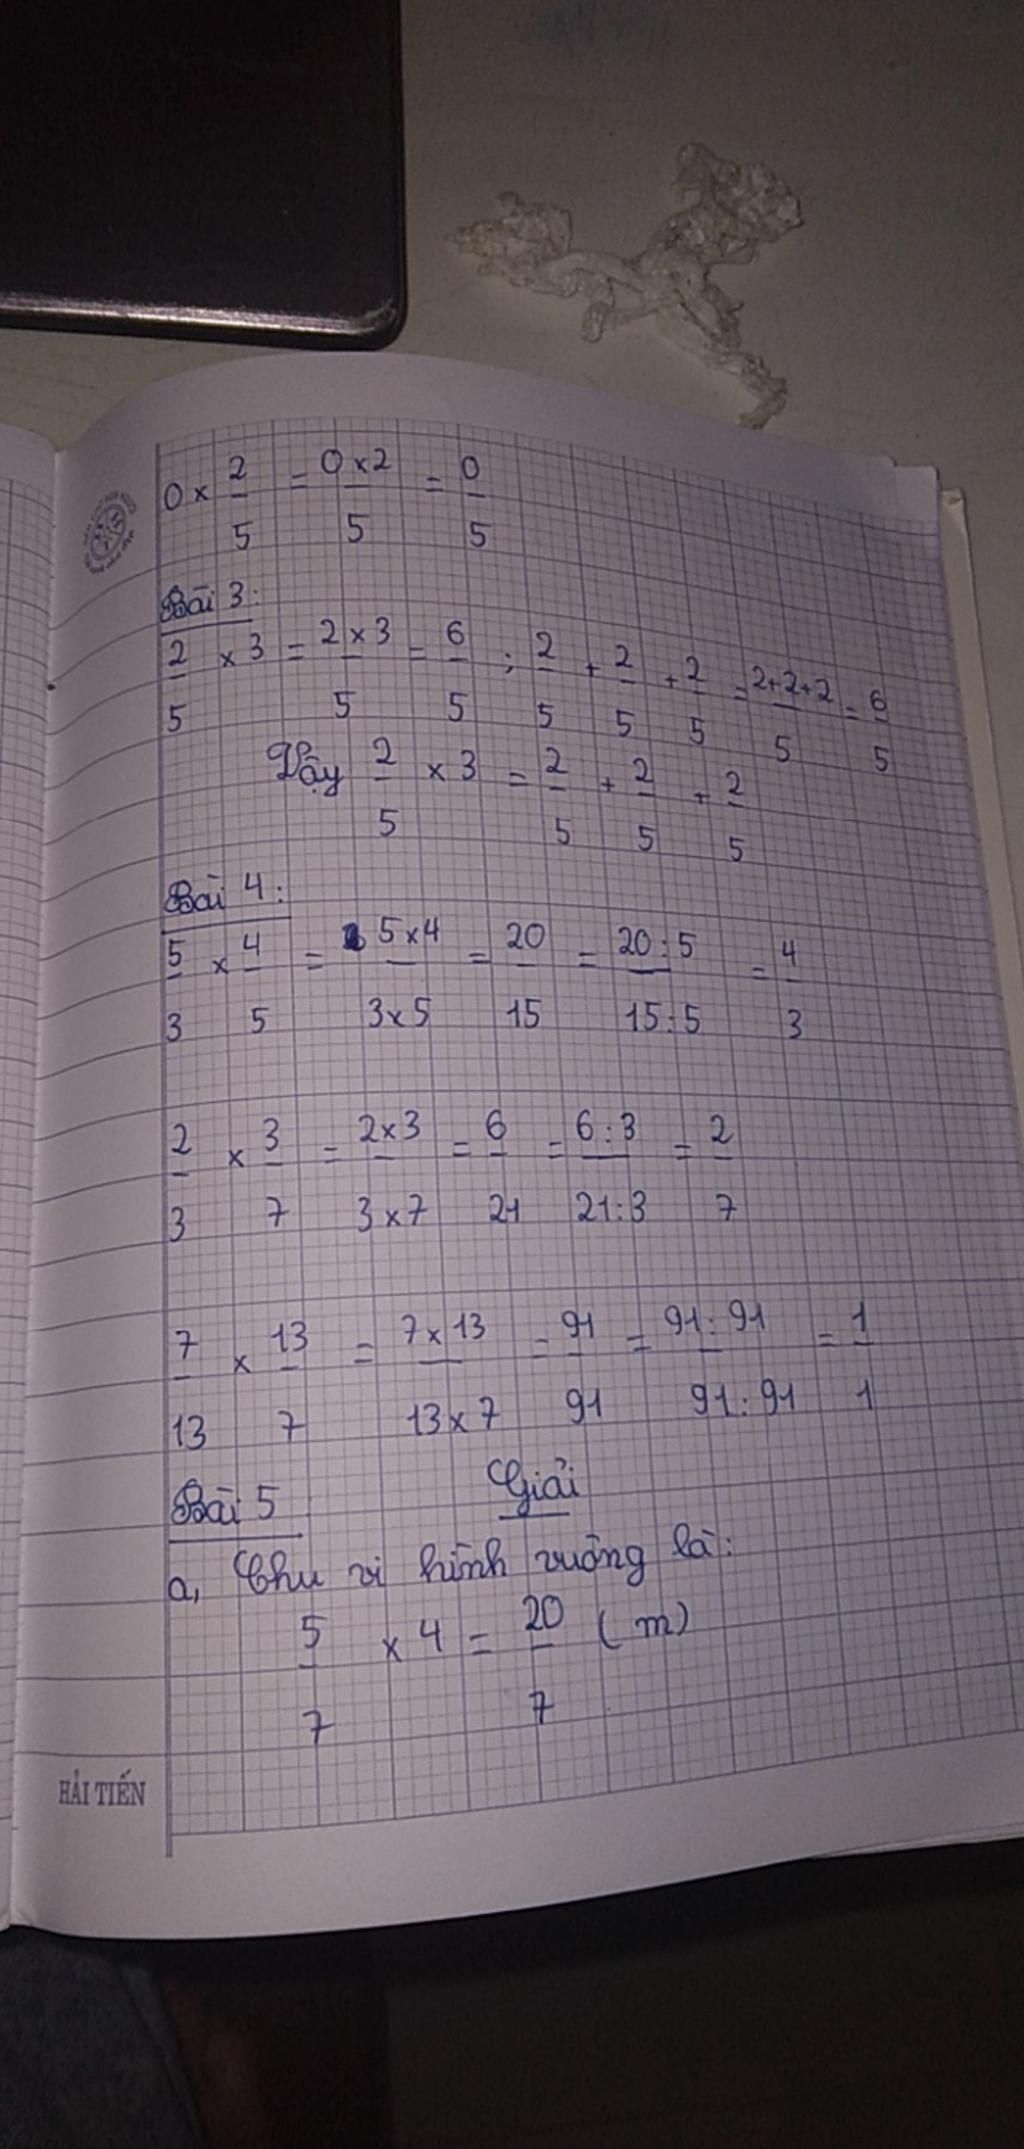 0 × 2/5 = 0×2/5 = 0/5
Bài 3:
2/5 × 3 = 2×3/5 = 6/5 ; 2/5 + 2/5 + 2/5 = 2+2+2/5 = 6/5
Vậy 2/5 × 3 = 2/5 + 2/5 + 2/5
Bài 4:
5/3 × 4/5 = 5×4/3×5 = 20/15 = 20:5/15:5 = 4/3
2/3 × 3/7 = 2×3/3×7 = 6/21 = 6:3/21:3 = 2/7
7/13 × 13/7 = 7×13/13×7 = 91/91 = 91:91/91:91 = 1/1
Bài 5 Giải
a, Chu vi hình vuông là:
5/7 × 4 = 20/7 (m)
HẢI TIẾN